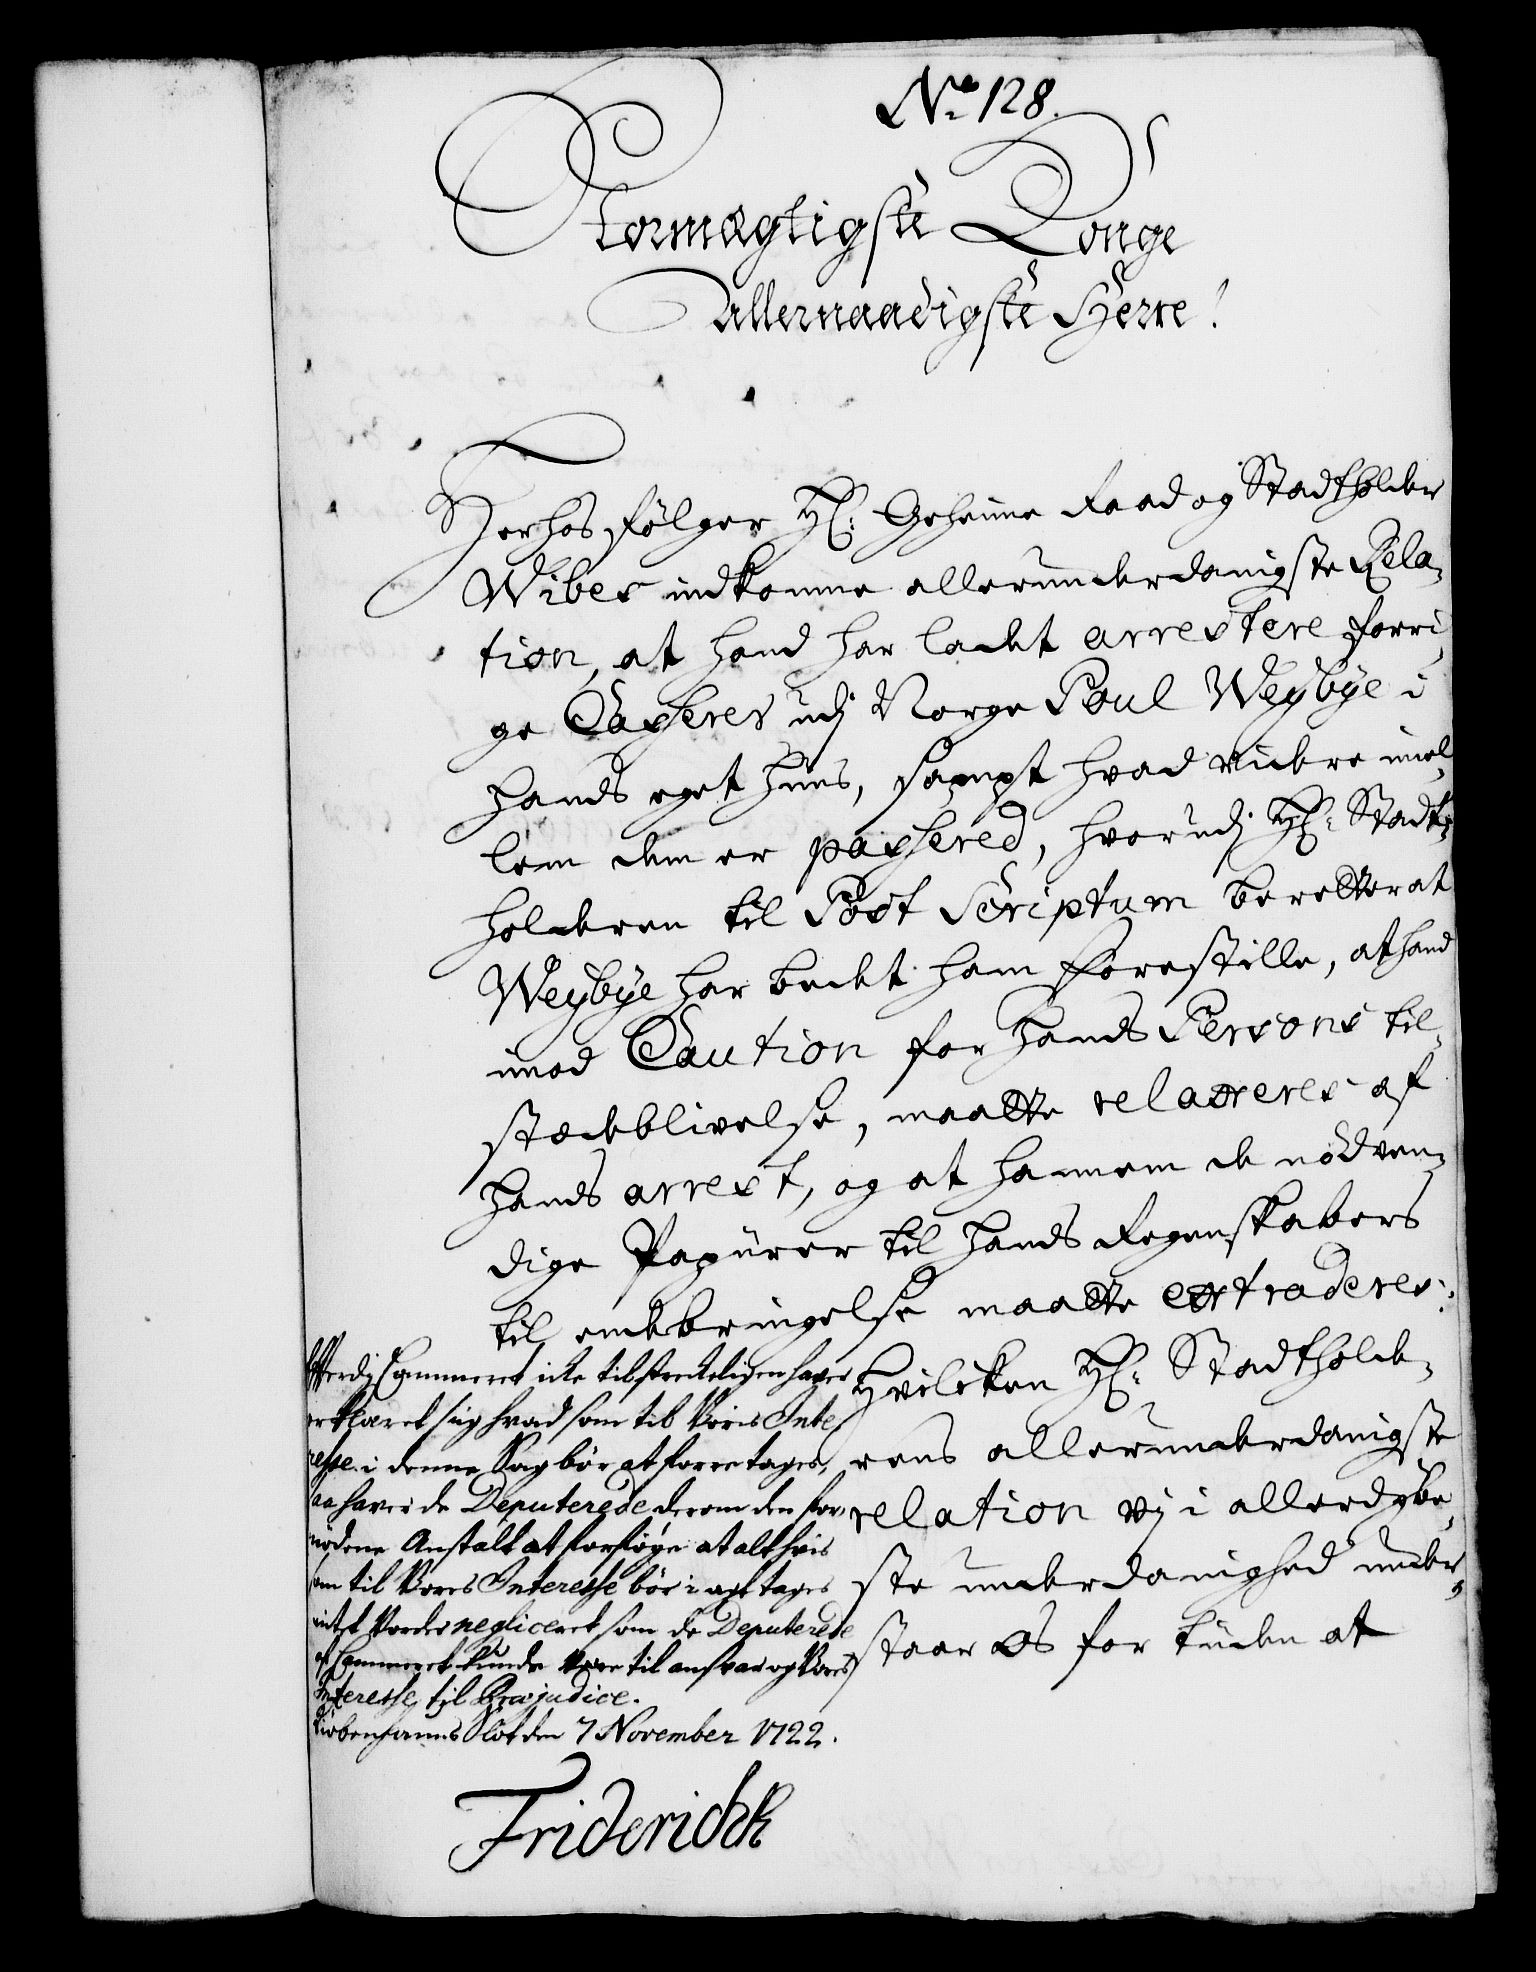 No 128.
Stormægtigste Konge
Allernaadigste Herre!
Herhos følger H: Geheime Raad og Stadtholder
Wibes indkomne allerunderdanigste Rela-
tion, at hand har ladet arrestere forri-
ge Casserer udj Norge Poul Weybye i
hands eget huus, sampt hvad videre imel-
lem dem er passered, hvorudj H: Stadt-
holderen til Post Scriptum beretter at
Weybye har bedet ham forestille, at hand
imod Caution for hands Persons til-
stædeblivelse, maatte relaxeres af
hands arrest, og at hannem de nödven-
dige Papiirer til hands Regenskabers
til endebringelse maatte extraderes:
Hvilcken H: Stadtholde-
rens allerunderdanigste
relation vj i allerdybe-
ste underdanighed under-
staar os for tiiden at
Efterdj Cammeret icke tilstreckeligen haver
erklæret sig hvad som til Voris Inte-
resse i denne Sag bör at foretages,
saa haver de Deputerede derom den for-
nödene Anstalt at forföye at alt hvis
som til Vores Interesse bör i agt tages
intet Vorder negliceret som de Deputerede
af Cammeret kunde være til ansvar og Vores
Interesse til Præjudice.
Kiöbenhavns Slot den 7 November 1722.
Friderich R